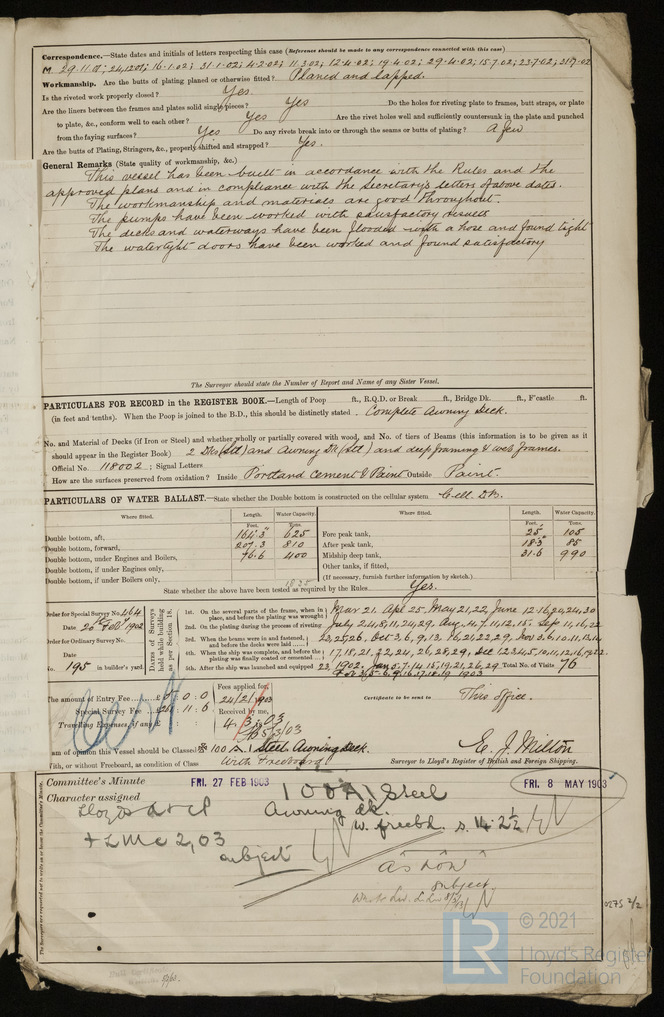 Correspondence.—State dates and initials of letters respecting this case (Reference should be made to any correspondence connected with this case)
M. 29.11.01; 24.12.01; 16.1.02; 31.1.02; 4.2.02; 11.3.02; 12.4.02; 19.4.02; 29.4.02; 15.7.02; 23.7.02; 31.7.02
Workmanship. Are the butts of plating planed or otherwise fitted? Planed and lapped.
Is the riveted work properly closed? Yes
Are the liners between the frames and plates solid single pieces? Yes Do the holes for riveting plate to frames, butt straps, or plate
to plate, &c., conform well to each other? Yes Are the rivet holes well and sufficiently countersunk in the plate and punched
from the faying surfaces? Yes Do any rivets break into or through the seams or butts of plating? A few
Are the butts of Plating, Stringers, &c., properly shifted and strapped? Yes.
General Remarks (State quality of workmanship, &c.)
This vessel has been built in accordance with the Rules and the
approved plans and in compliance with the Secretary's letters of above dates.
The workmanship and materials are good throughout.
The pumps have been worked with satisfactory results
The decks and waterways have been flooded with a hose and found tight
The watertight doors have been worked and found satisfactory
The Surveyor should state the Number of Report and Name of any Sister Vessel.
PARTICULARS FOR RECORD in the REGISTER BOOK.—Length of Poop ft., R.Q.D. or Break ft., Bridge Dk. ft., F'castle ft.
(in feet and tenths). When the Poop is joined to the B.D., this should be distinctly stated. Complete Awning Deck.
No. and Material of Decks (if Iron or Steel) and whether wholly or partially covered with wood, and No. of tiers of Beams (this information is to be given as it
should appear in the Register Book) 2 Dks (Stl) and Awning Dk (Stl) and deep framing & web frames.
Official No. 118002; Signal Letters
How are the surfaces preserved from oxidation? Inside Portland Cement & Paint Outside Paint.
PARTICULARS OF WATER BALLAST.—State whether the Double bottom is constructed on the cellular system Cell. DB.
Where fitted. Length. Water Capacity. Where fitted. Length. Water Capacity.
Feet. Tons. Feet. Tons.
Double bottom, aft, 164.3 625 Fore peak tank, 25 105
Double bottom, forward, 207.3 810 After peak tank, 18.5 85
Double bottom, under Engines and Boilers, 76.6 400 Midship deep tank, 31.6 990
Double bottom, if under Engines only, Other tanks, if fitted,
Double bottom, if under Boilers only, 1835 (If necessary, furnish further information by sketch.)
State whether the above have been tested as required by the Rules Yes.
Order for Special Survey No. 464
Date 20th Feb 1902
Order for Ordinary Survey No.
Date
No. 195 in builder's yard.
Dates of Surveys held while building as per Section 18.
1st. On the several parts of the frame, when in place, and before the plating was wrought Mar 21. Apl 25. May 21, 22, June 12.16.24.24.30
2nd. On the plating during the process of riveting July 2.4.8.11.24.29. Aug. 4.7.11.12.15. Sep 11.16.22
3rd. When the beams were in and fastened, and before the decks were laid
4th. When the ship was complete, and before the plating was finally coated or cemented
5th. After the ship was launched and equipped Total No. of Visits 76
The amount of Entry Fee £5 : 0 : 0 Fees applied for, Certificate to be sent to This office.
Special Survey Fee 24/2/1903
Travelling Expenses, if any £ Received by me,
4/3/03
5/3/03
am of opinion this Vessel should be Classed 100 A 1 Steel Awning deck.
With, or without Freeboard, as condition of Class With Freeboard
E. J. Milton
Surveyor to Lloyd's Register of British and Foreign Shipping.
Committee's Minute FRI. 27 FEB 1903 FRI. 8 MAY 1903
Character assigned 100A1 Steel
Lloyds A & CP Awning dk.
+ LMC 2,03 w. freebd. s. 14. 2½
subject
as now
subject
© 2021
LR
Lloyd's Register
Foundation